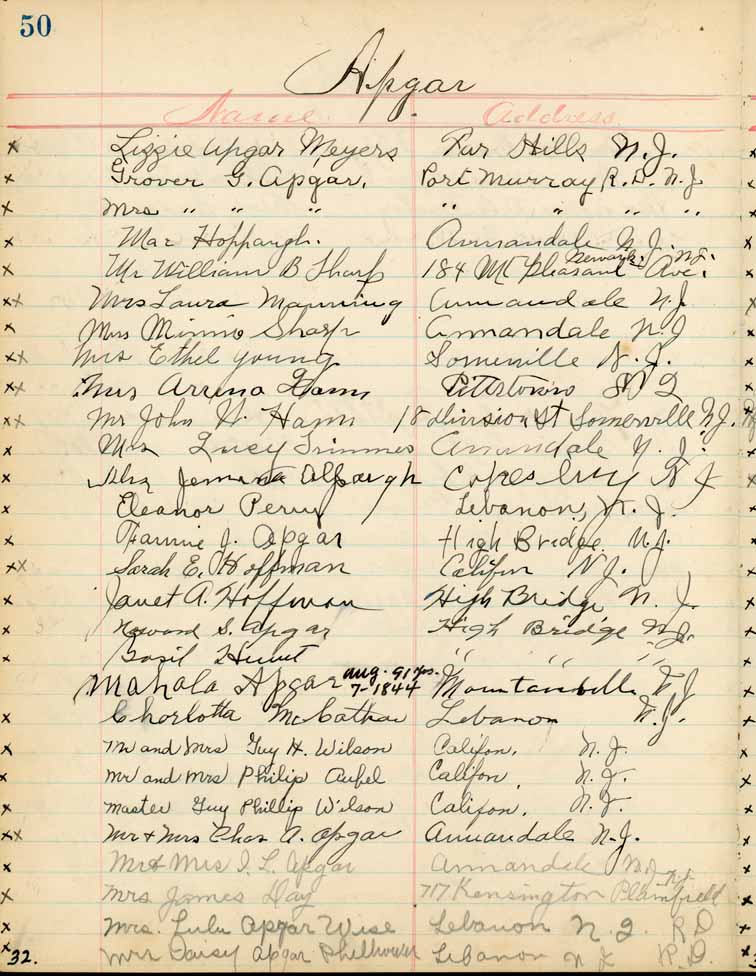 50
Apgar
Name. Address.
x Lizzie Apgar Meyers Far Hills N.J.
x Grover G. Apgar. Port Murray R.D. N.J
x Mrs " " " " " " "
x Mae Hoppaugh. Annandale N.J.
x Mr William B Sharp 184 Mt Pleasant Ave. Newark, N.J.
xx Mrs Laura Manning Annandale N.J
x Mrs Minnie Sharp Annandale N.J
xx Mrs Ethel Young Somerville N.J.
xx Mrs Hann Pittstown N J
xx Mr John H. Hann 18 division St Somerville N.J.
x Mrs Lucy Trimmer Annandale N.J.
x Jemima Alpaugh Cokesbury N J
x Eleanor Perry Lebanon, N.J.
x Fannie J. Apgar High Bridge, N.J.
xx Sarah E. Hoffman Califon N.J.
x Janet A. Hoffman High Bridge N.J.
x Howard S. Apgar High Bridge N.J.
x Hunt " " "
Mahala Apgar Aug. 7-1844 91 yrs. Mountainville N J
x Charlotta McCathar Lebanon N.J.
x Mr and Mrs Guy H. Wilson Califon, N.J.
x Mr and Mrs Philip Aufel Califon, N.J.
x Master Guy Phillip Wilson Califon, N.J.
xx Mr + Mrs Chas A. Apgar Annandale N.J.
x Mr & Mrs I. L. Apgar Annandale N.J
x Mrs James Day 717 Kensington Plainfield N.J.
x Mrs. Lulu Apgar Wise Lebanon N.J. R D
x 32. Mrs Daisy Apgar Philhower Lebanon N J R.D.